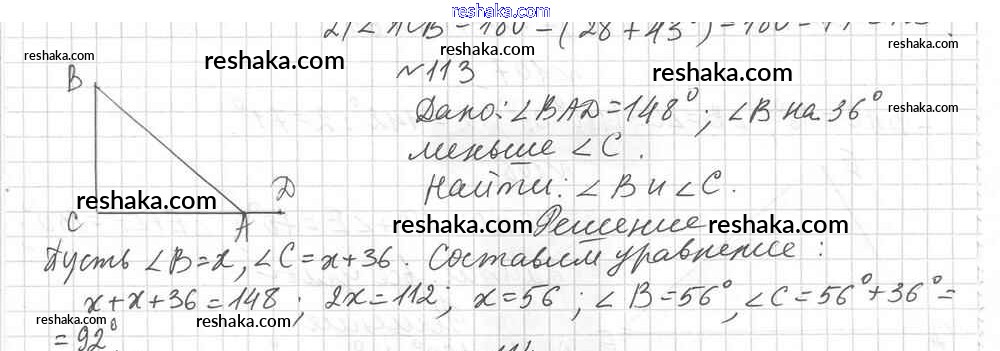 reshaka.com
2) ∠ACB = 180 - (28 + 43°) = 180 -
reshaka.com
reshaka.com
reshaka.com
№113
reshaka.com
B
Дано: ∠BAD = 148°; ∠B на 36°
reshaka.com
меньше ∠C.
Найти: ∠B и ∠C.
reshaka.com
D
C
A
reshaka.com Решение reshaka.com
Пусть ∠B = x, ∠C = x + 36. Составим уравнение:
x + x + 36 = 148; 2x = 112; x = 56; ∠B = 56°, ∠C = 56° + 36° =
reshaka.com
reshaka.com
reshaka.com
reshaka.com
= 92°